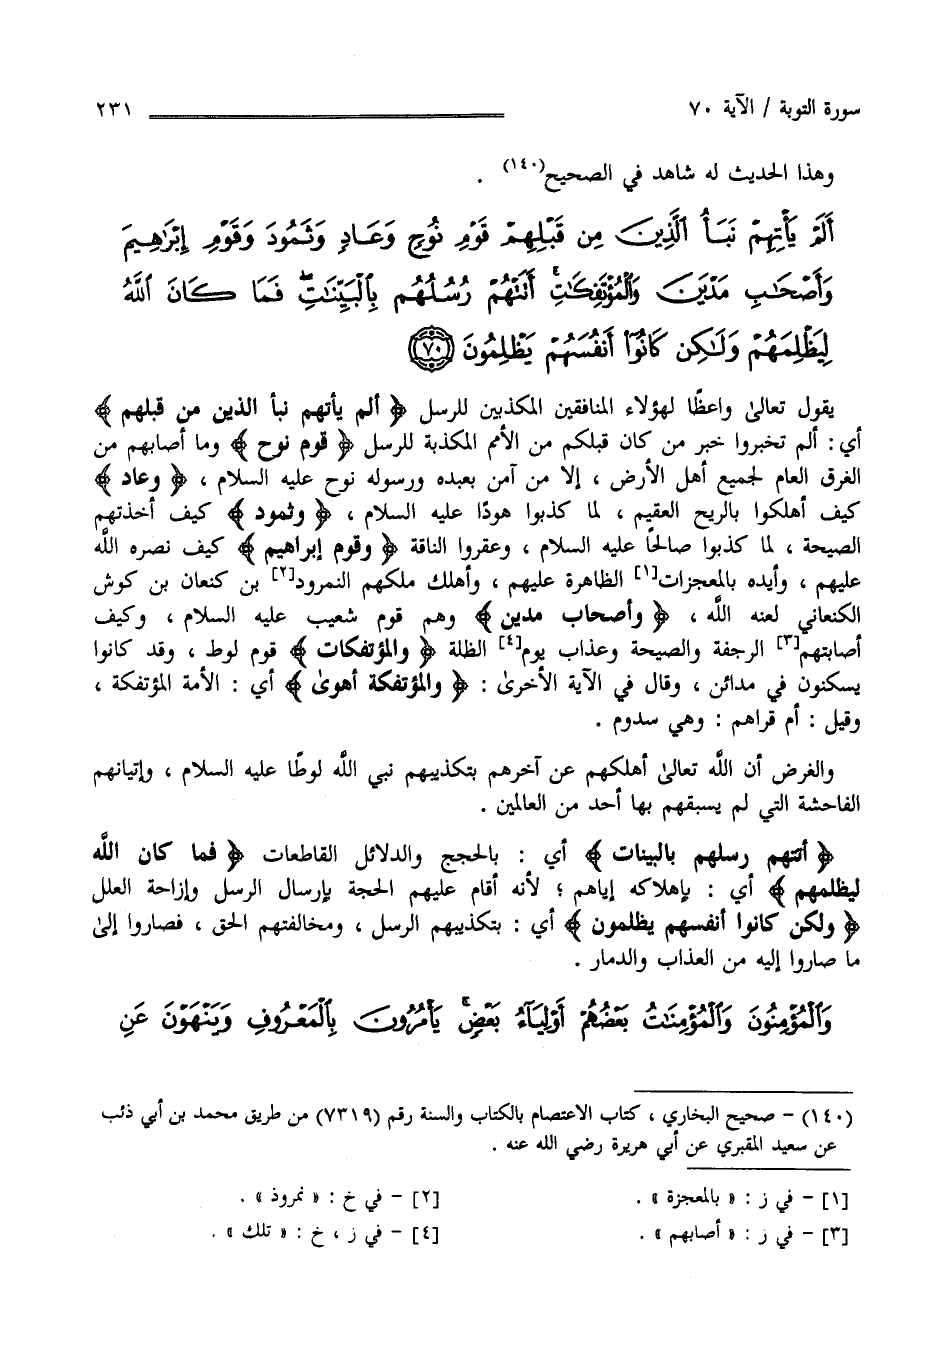 سورة التوبة / الآية ٧٠ ٢٣١
وهذا الحديث له شاهد في الصحيح(١٤٠) .
أَلَمْ يَأْتِهِمْ نَبَأُ الَّذِينَ مِن قَبْلِهِمْ قَوْمِ نُوحٍ وَعَادٍ وَثَمُودَ وَقَوْمِ إِبْرَاهِيمَ
وَأَصْحَابِ مَدْيَنَ وَالْمُؤْتَفِكَاتِ أَتَتْهُمْ رُسُلُهُم بِالْبَيِّنَاتِ فَمَا كَانَ اللَّهُ
لِيَظْلِمَهُمْ وَلَكِن كَانُوا أَنفُسَهُمْ يَظْلِمُونَ ﴿٧٠﴾
يقول تعالى واعظًا لهؤلاء المنافقين المكذبين للرسل ﴿ ألم يأتهم نبأ الذين من قبلهم ﴾
أي : ألم تخبروا خبر من كان قبلكم من الأمم المكذبة للرسل ﴿ قوم نوح ﴾ وما أصابهم من
الغرق العام لجميع أهل الأرض ، إلا من آمن بعبده ورسوله نوح عليه السلام ، ﴿ وعاد ﴾
كيف أهلكوا بالريح العقيم ، لما كذبوا هودًا عليه السلام ، ﴿ وثمود ﴾ كيف أخذتهم
الصيحة ، لما كذبوا صالحًا عليه السلام ، وعقروا الناقة ﴿ وقوم إبراهيم ﴾ كيف نصره اللَّه
عليهم ، وأيده بالمعجزات[١] الظاهرة عليهم ، وأهلك ملكهم النمرود[٢] بن كنعان بن كوش
الكنعاني لعنه اللَّه ، ﴿ وأصحاب مدين ﴾ وهم قوم شعيب عليه السلام ، وكيف
أصابتهم[٣] الرجفة والصيحة وعذاب يوم[٤] الظلة ﴿ والمؤتفكات ﴾ قوم لوط ، وقد كانوا
يسكنون في مدائن ، وقال في الآية الأخرى : ﴿ والمؤتفكة أهوى ﴾ أي : الأمة المؤتفكة ،
وقيل : أم قراهم : وهي سدوم .
والغرض أن اللَّه تعالى أهلكهم عن آخرهم بتكذيبهم نبي اللَّه لوطًا عليه السلام ، وإتيانهم
الفاحشة التي لم يسبقهم بها أحد من العالمين .
﴿ أتتهم رسلهم بالبينات ﴾ أي : بالحجج والدلائل القاطعات ﴿ فما كان اللَّه
ليظلمهم ﴾ أي : بإهلاكه إياهم ؛ لأنه أقام عليهم الحجة بإرسال الرسل وإزاحة العلل
﴿ ولكن كانوا أنفسهم يظلمون ﴾ أي : بتكذيبهم الرسل ، ومخالفتهم الحق ، فصاروا إلى
ما صاروا إليه من العذاب والدمار .
وَالْمُؤْمِنُونَ وَالْمُؤْمِنَاتُ بَعْضُهُمْ أَوْلِيَاءُ بَعْضٍ يَأْمُرُونَ بِالْمَعْرُوفِ وَيَنْهَوْنَ عَنِ
(١٤٠) - صحيح البخاري ، كتاب الاعتصام بالكتاب والسنة رقم (٧٣١٩) من طريق محمد بن أبي ذئب
عن سعيد المقبري عن أبي هريرة رضي الله عنه .
[١] - في ز : « بالمعجزة » . [٢] - في خ : « نمروذ » .
[٣] - في ز : « أصابهم » . [٤] - في ز ، خ : « تلك » .